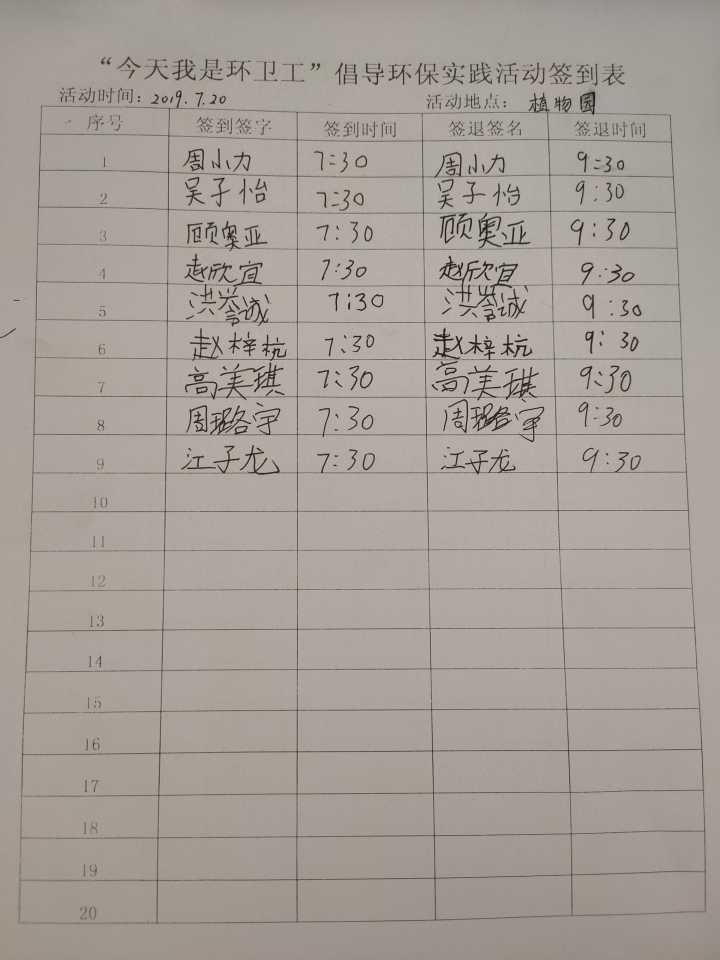 “今天我是环卫工”倡导环保实践活动签到表
活动时间：2019.7.20 活动地点： 植物园
序号 签到签字 签到时间 签退签名 签退时间
1 周小力 7:30 周小力 9:30
2 吴子怡 7:30 吴子怡 9:30
3 顾奥亚 7:30 顾奥亚 9:30
4 赵欣宜 7:30 赵欣宜 9:30
5 洪誉诚 7:30 洪誉诚 9:30
6 赵梓杭 7:30 赵梓杭 9:30
7 高美琪 7:30 高美琪 9:30
8 周璐宇 7:30 周璐宇 9:30
9 江子龙 7:30 江子龙 9:30
10
11
12
13
14
15
16
17
18
19
20